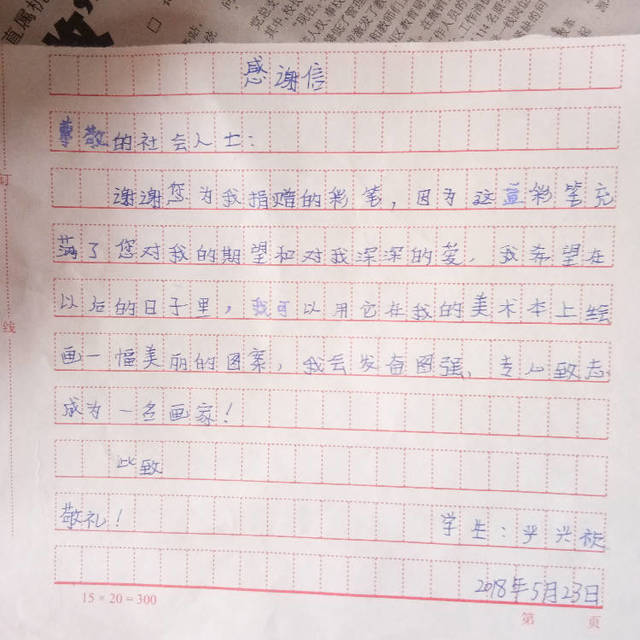 感谢信
尊敬的社会人士：
谢谢您为我捐赠的彩笔，因为这盒彩笔充
满了您对我的期望和对我深深的爱，我希望在
以后的日子里，我可以用它在我的美术本上绘
画一幅美丽的图案，我会发奋图强、专心致志
成为一名画家！
此致
敬礼！ 学生：兴
2018年5月23日
15×20=300 第 页
订
线